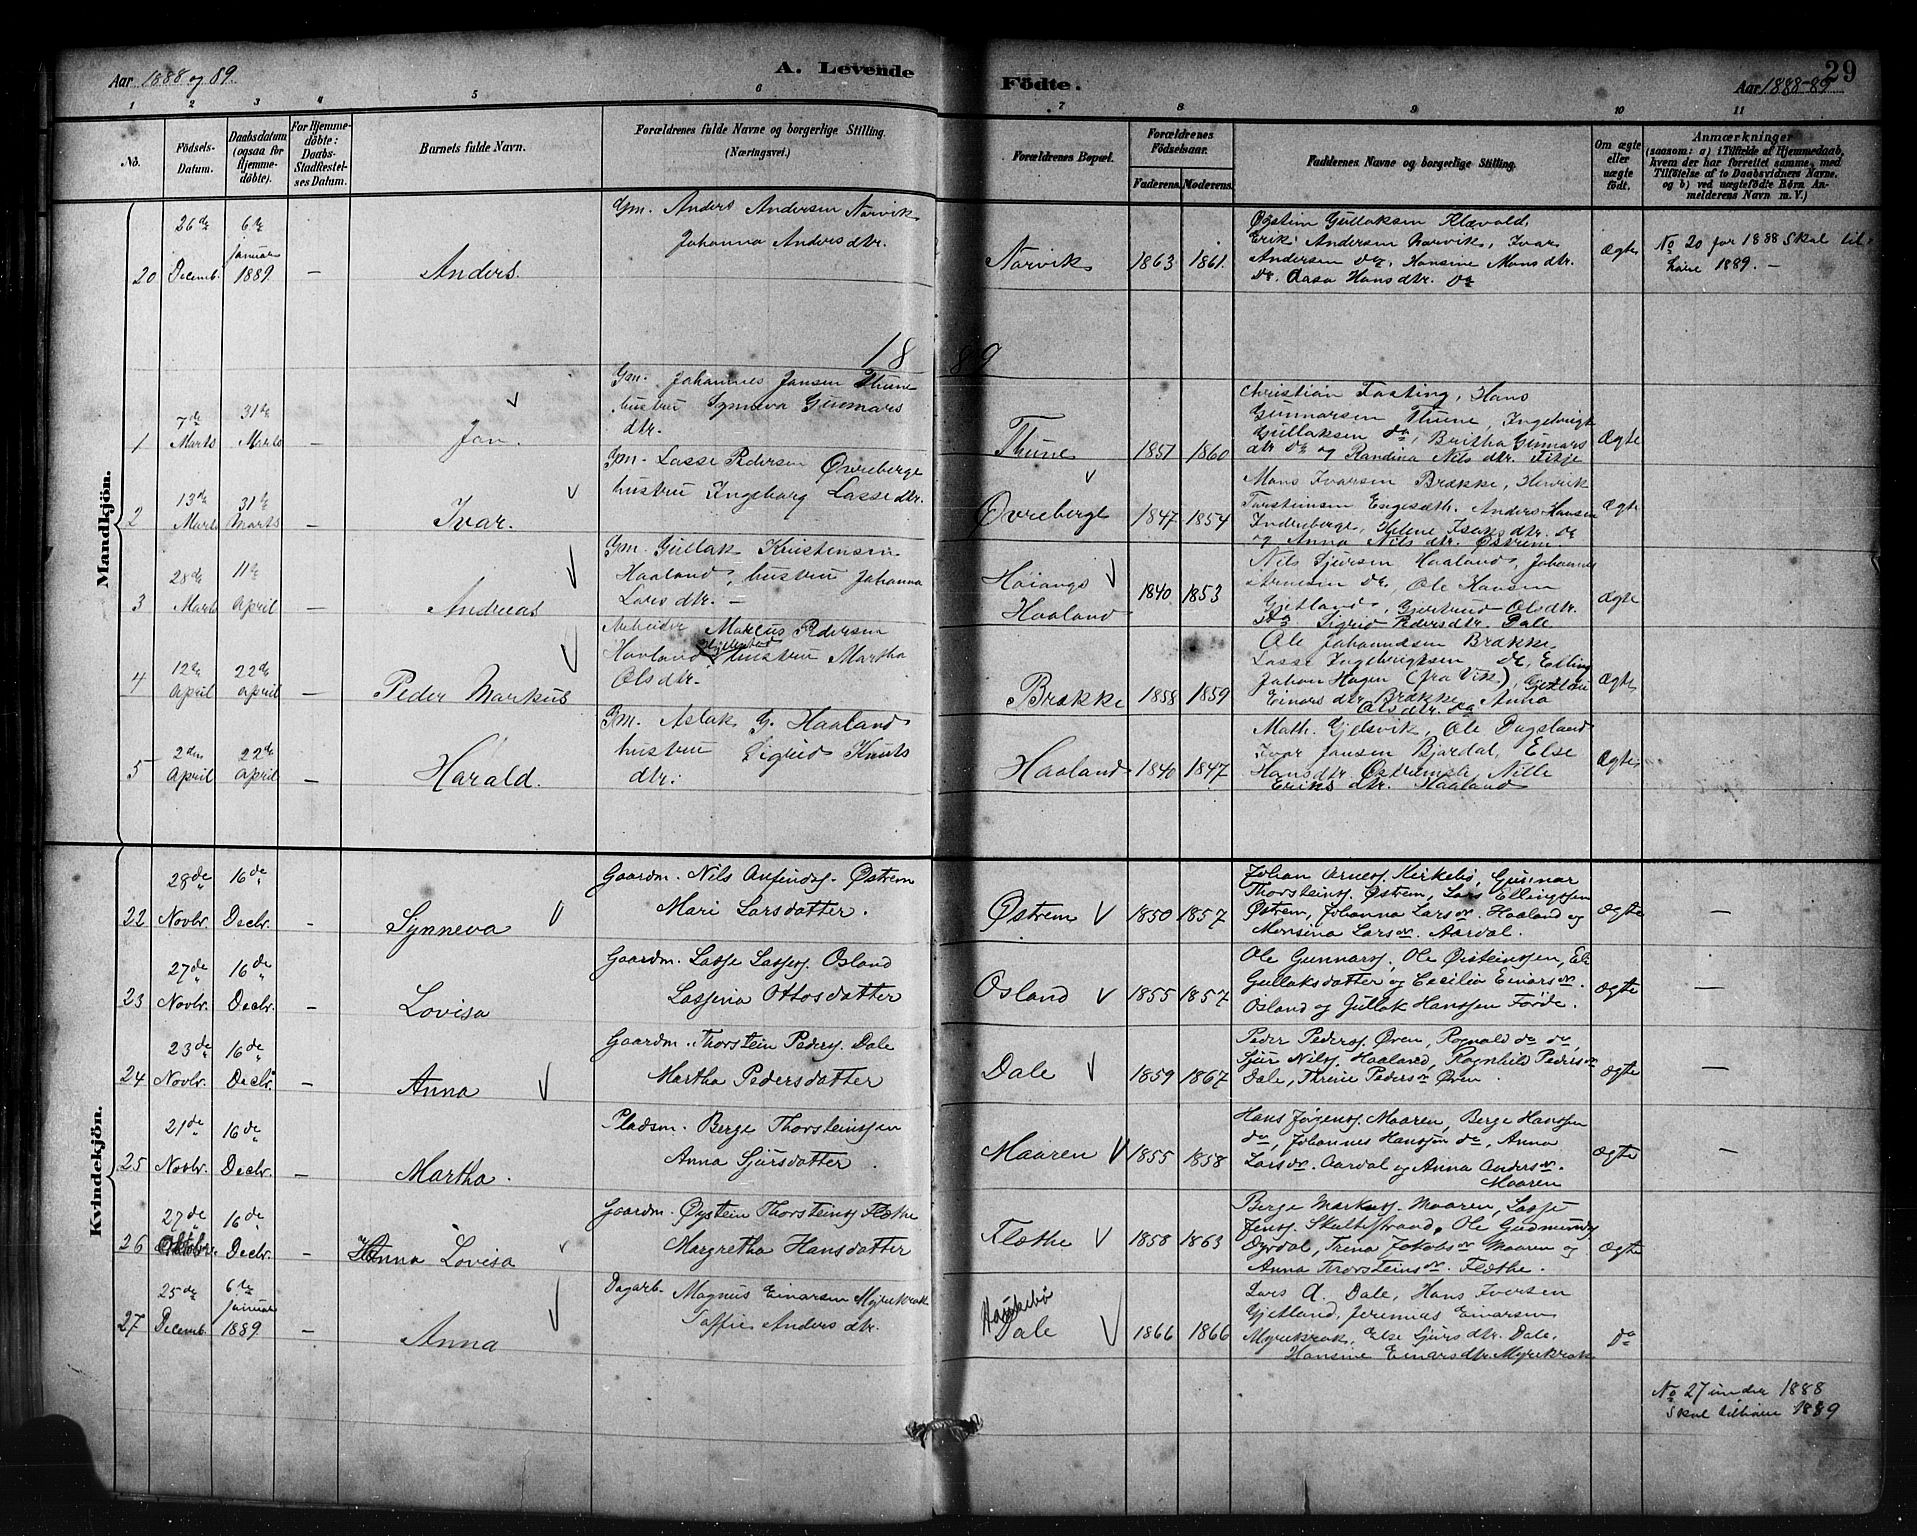 Aar 1888 og 89.
A. Levende
Födte.
Aar 1888-89
29
1 2 3 4 5 6 7 8 9 10 11
No.
Födsels-Datum.
Daabsdatum (ogsaa for Hjemme-döbte).
For Hjemme-döbte: Daabs-Stadfæstel-ses Datum.
Barnets fulde Navn.
Forældrenes fulde Navne og borgerlige Stilling. (Næringsvei.)
Forældrenes Bopæl.
Forældrenes Födselsaar.
Faderens. Moderens.
Faddernes Navne og borgerlige Stilling.
Om ægte eller uægte födt.
Anmærkninger
(saasom: a) i Tilfælde af Hjemmedaab, hvem der har forrettet samme, med Tilföielse af to Daabsvidners Navne, og b) ved uægtefödte Börn An-melderens Navn m. V.)
Mandkjön.
20 26de Decemb. 6te Januar 1889. — Anders.
Gm. Anders Andersen Norvik
Johanna Andersdtr.
Norvik 1863 1861.
Øystein Gullaksen Klævold,
Erik Andersen Norvik, Ivar
Andersen do, Hansine Monsdtr.
do. Aasa Hansdtr. do
Ægte
No 20 for 1888 skal til-
höre 1889. —
1889
1 7de Marts 31de Marts — Jan.
Gm. Johannes Jansen Thune
hustru Synneva Gunnars
dtr.
Thune 1851 1860
Christian Fasting, Hans
Gunnarsen Thune, Ingebrigt
Gullaksen do, Britha Gunnars
dtr do og Randina Nilsdtr.
Ægte
2 13de Marts 31te Marts — Ivar.
Gm. Lasse Pedersen Øvreberge
hustru Ingeborg Lassedtr.
Øvreberge 1847 1854
Mons Ivarsen Brække, Henrik
Torsteinsen Engesæth. Anders Hansen
Indreberge, Helene Isaksdtr. do
og Anna Nilsdtr. Østrem
Ægte
3 28de Marts 11te April — Andreas
Gm. Gullak Kristensen
Haaland, hustru Johanna
Larsdtr. —
Höiangs Haaland 1840 1853
Nils Sjursen Haaland, Johannes
Arnesen do, Ole Hansen
Gjetland, Gjertrud Olsdtr.
do Sigrid Pedersdtr. Dale
Ægte
4 12de April 22de April — Peder Markus
Arbeider Markus Pedersen
Hovland hustru Martha
Olsdtr.
Brække 1858 1859
Ole Johannesen Brække
Lasse Ingebrigtsen do, Elling
Johan Hagen (fra Vik),
Einarsdtr Brække, Anna
Olsdtr. do
Ægte
5 2den April 22de April — Harald.
Gm. Aslak G. Haaland
hustru Sigrid Knuts
dtr.
Haaland 1840 1847
Math. Gjelsvik, Ole Dagsland
Ivar Jansen Bjordal, Else
Hansdtr. Østrem, Nille
Eriksdtr. Haaland
Ægte
Kvindekjön.
22 28de Novbr. 16de Decbr. — Synneva
Gaardm. Nils Anfindss. Østrem
Mari Larsdatter.
Østrem 1850 1857
Johan Arness. Kirkebö, Gunnar
Thorsteinss. Østrem, Lars Ellingssen
Østrem, Johanna Larsdr. Haaland og
Monsina Larsdr. Aardal.
Ægte —
23 27de Novbr. 16de Decbr. — Lovisa
Gaardm. Lasse Lasses. Osland
Lassina Ottosdatter
Osland 1855 1857
Ole Gunnars, Ole Øisteinssen, Eli
Gullaksdatter og Cecilia Einarsdr.
Osland og Gullak Hanssen Förde.
Ægte —
24 23de Novbr. 16de Decbr. — Anna
Gaardm. Thorstein Peders. Dale
Martha Pedersdatter
Dale 1859 1867
Peder Peders. Øren, Rognald do do,
Sjur Nils. Haaland, Ragnhild Pedersdr
Dale, Thrine Pedersdr Øren.
Ægte —
25 21de Novbr. 16de Decbr. — Martha.
Pladsm. Berge Thorsteinssen
Anna Sjursdatter.
Maaren 1855 1858
Hans Jørgens. Maaren, Berge Hanssen
do, Johannes Hanssen do, Anna
Larsdr. Aardal og Anna Andersdr.
Maaren
Ægte —
26 27de Oktobr. 16de Decbr. — Hanna Lovisa
Gaardm. Øystein Thorsteinss Flöthe
Margretha Hansdatter
Flöthe 1858 1863
Berge Markus. Maaren, Lasse
Jens. Skulestrand, Ole Gudmunds
Dyrdal, Trina Jakobsdr Maaren og
Anna Thorsteinsdr. Flöthe.
Ægte
27 25de Decemb. 6te Januar 1889. — Anna
Dagarb. Magnus Einarsen Myrekrok
Soffie Andersdtr.
Haukebö
Dale 1866 1866
Lars A. Dale, Hans Iversen
Gjetland, Jeremias Einarsen
Myrekrok, Else Sjursdtr. Dale,
Hansine Einarsdtr Myrekrok
do
No 27 under 1888
Skal tilhöre 1889